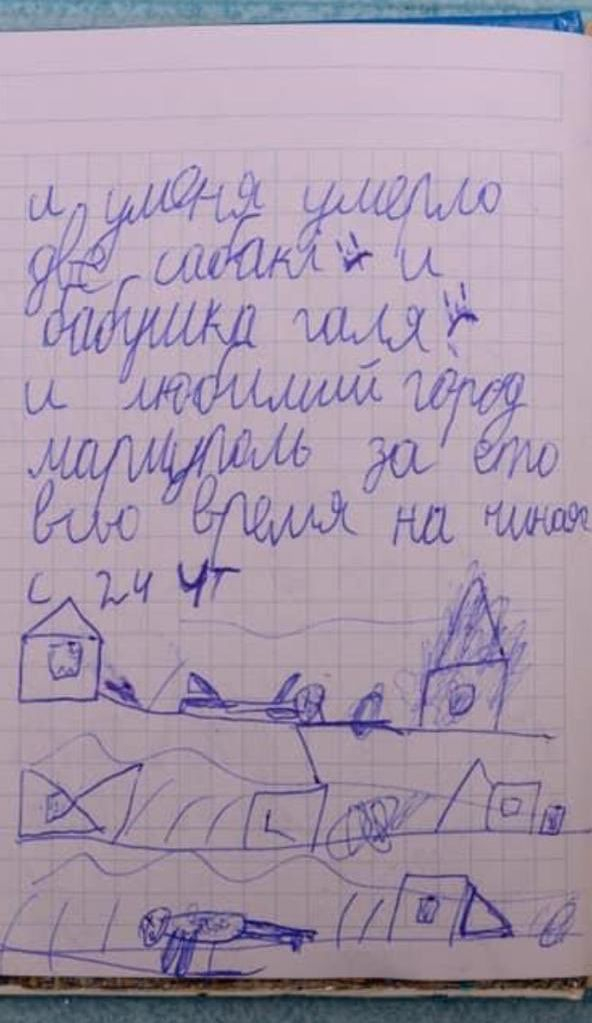 и уменя умерло
две сабакі и
бабушка галя
и любимий город
мариуполь за ето
всьо время на чиная
с 24 чт